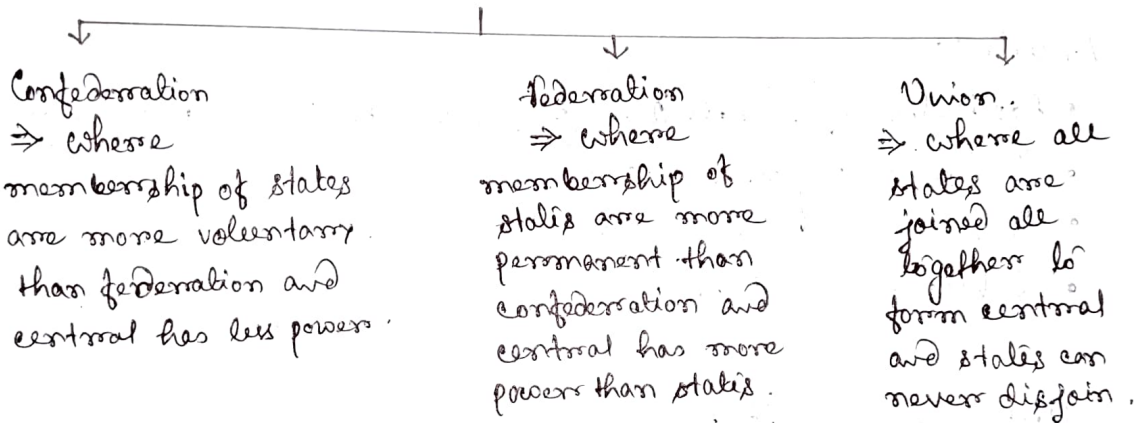 Confederation
⇒ where
membership of states
are more voluntary
than federation and
central has less power.
Federation
⇒ where
membership of
states are more
permanent than
confederation and
central has more
power than states.
Union.
⇒ where all
states are
joined all
together to
form central
and states can
never disjoin.